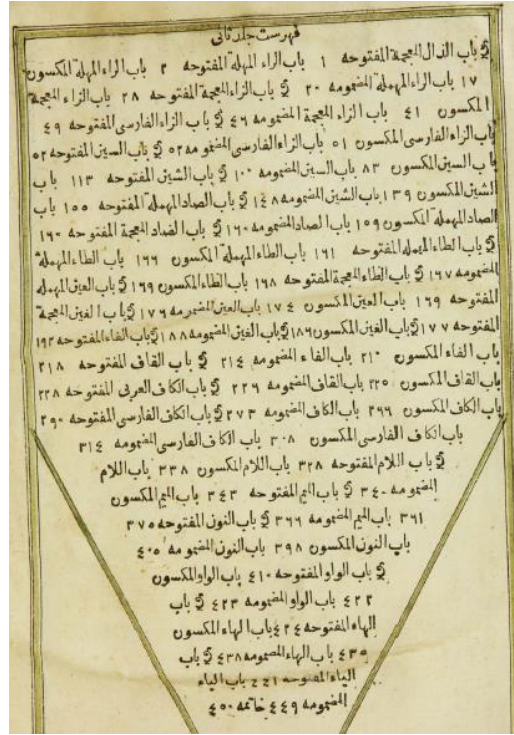 فهرست جلد ثانی
ﰲ باب الذال المعجمة المفتوحه ۱ باب الراء المهلة المفتوحه ۲ باب الراء المهلة المکسون
۱۷ باب الراء المهملة المضمومه ۲۰ ﰲ باب الزاء المعجمة المفتوحه ۲۸ باب الزاء المعجمة
المکسون ٤۱ باب الزاء المعجمة المضمومه ٤٦ ﰲ باب الزاء الفارسی المفتوحه ٤۹
باب الزاء الفارسی المکسون ٥۱ باب الزاء الفارسی المضمومه ٥۲ ﰲ باب السین المفتوحه ٥۲
باب السین المکسون ۸۳ باب السین المضمومه ۱۰۰ ﰲ باب الشین المفتوحه ۱۱۳ باب
الشین المکسون ۱۳۹ باب الشین المضمومه ۱٤۸ ﰲ باب الصاد المهملة المفتوحه ۱٥٥ باب
الصاد المهملة المکسون ۱٥۹ باب الصاد المضمومه ۱٦۰ ﰲ باب الضاد المعجمة المفتوحه ۱٦۰
ﰲ باب الطاء المهمله المفتوحه ۱٦۱ باب الطاء المهملة المکسون ۱٦٦ باب الطاء المهملة
المضمومه ۱٦۷ ﰲ باب الظاء المعجمة المفتوحه ۱٦۸ باب الظاء المکسون ۱٦۹ ﰲ باب العین المهمله
المفتوحه ۱٦۹ باب العین المکسون ۱۷٤ باب العین المضمومه ۱۷٦ ﰲ باب الغین المعجمة
المفتوحه ۱۷۷ ﰲ باب الغین المکسون ۱۸٦ ﰲ باب الغین المضمومه ۱۸۸ ﰲ باب الفاء المفتوحه ۱۹۲
باب الفاء المکسون ۲۱۰ باب الفاء المضمومه ۲۱٤ ﰲ باب القاف المفتوحه ۲۱۸
باب القاف المکسون ۲۲٥ باب القاف المضمومه ۲۲٦ ﰲ باب الکاف العربی المفتوحه ۲۲۸
باب الکاف المکسون ۲٦٦ باب الکاف المضمومه ۲۷۳ ﰲ باب الکاف الفارسی المفتوحه ۲۹۰
باب الکاف الفارسی المکسون ۳۰۸ باب الکاف الفارسی المضمومه ۳۱٤
ﰲ باب اللام المفتوحه ۳۲۸ باب اللام المکسون ۳۳۸ باب اللام
المضمومه ۳٤۰ ﰲ باب المیم المفتوحه ۳٤۳ باب المیم المکسون
۳٦۱ باب المیم المضمومه ۳٦٦ ﰲ باب النون المفتوحه ۳۷٥
باب النون المکسون ۳۹۸ باب النون المضمومه ٤۰٥
ﰲ باب الواو المفتوحه ٤۱۰ باب الواو المکسون
٤۲۲ باب الواو المضمومه ٤۲۳ ﰲ باب
الهاء المفتوحه ٤۲٤ باب الهاء المکسون
٤۳٥ باب الهاء المضمومه ٤۳۸ ﰲ باب
الیاء المفتوحه ٤٤۱ باب الیاء
المضمومه ٤٤۹ خاتمه ٤٥۰